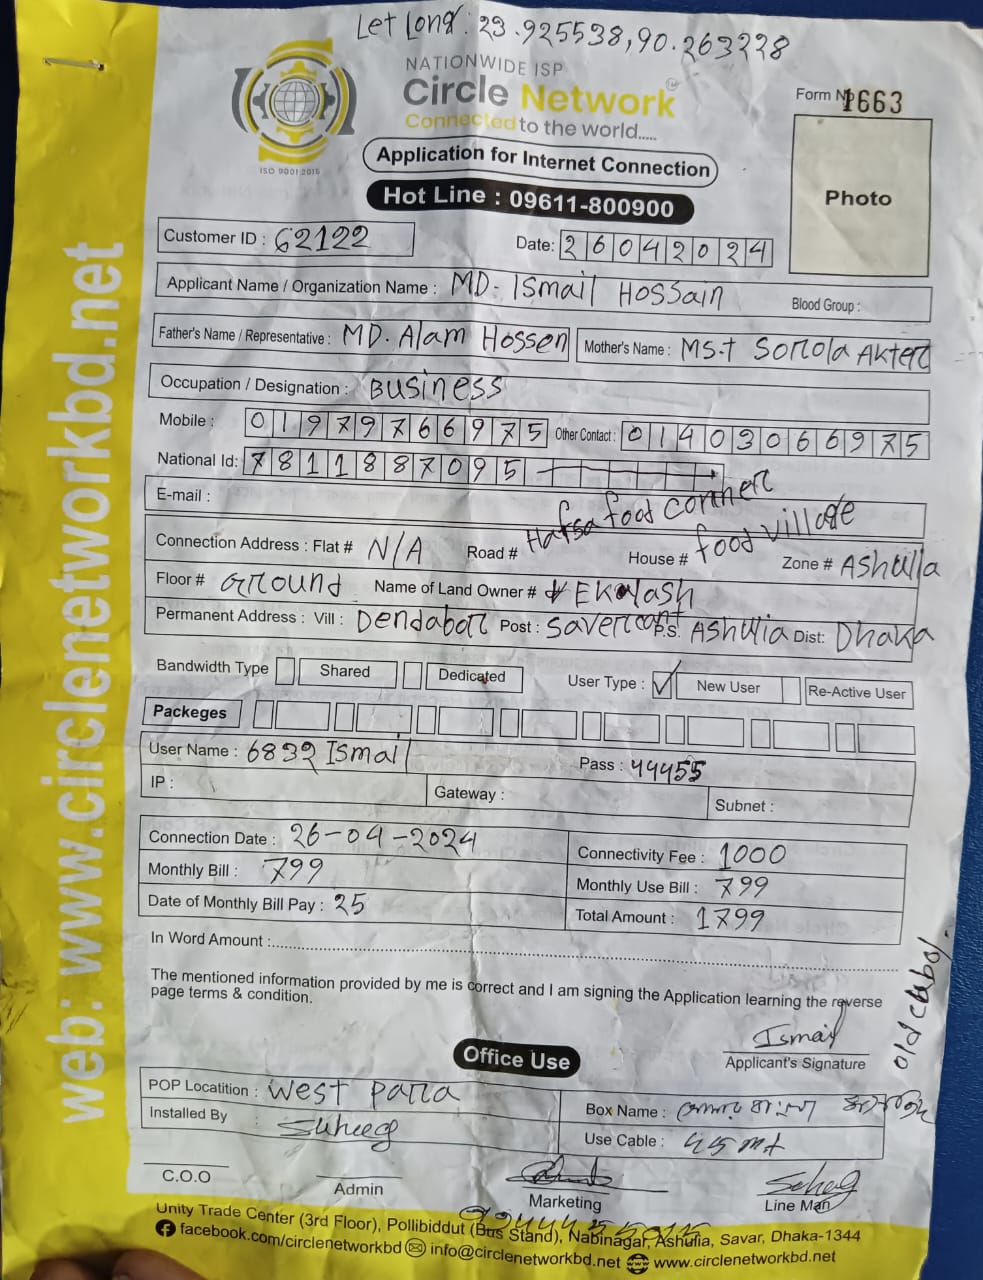 Let Long: 23.925538,90.263228
NATIONWIDE ISP
Circle Network
Connected to the world.....
ISO 9001:2015
Form No 1663
Application for Internet Connection
Hot Line : 09611-800900
Photo
Customer ID : 62122
Date: 26042024
Applicant Name / Organization Name : MD. Ismail Hossain
Blood Group :
Father's Name / Representative : MD. Alam Hossen
Mother's Name : MS.t
Occupation / Designation : Business
Mobile : 01979766975 Other Contact : 01403066975
National Id: 7811887095
E-mail :
Hafsa food Corner
Connection Address : Flat # N/A Road # House # food village Zone # Ashulia
Floor # Ground Name of Land Owner #
Permanent Address : Vill : Dendabar Post : Saver P.S. Ashulia Dist: Dhaka
Bandwidth Type Shared Dedicated User Type : ✓ New User Re-Active User
Packeges
User Name : 6832 Ismail Pass : 44455
IP : Gateway : Subnet :
Connection Date : 26-04-2024 Connectivity Fee : 1000
Monthly Bill : 799 Monthly Use Bill : 799
Date of Monthly Bill Pay : 25 Total Amount : 1799
In Word Amount :
The mentioned information provided by me is correct and I am signing the Application learning the reverse
page terms & condition.
Ismail
Applicant's Signature
old
Office Use
POP Locatition : West Para
Box Name :
Installed By :
Use Cable : 45 mt
C.O.O Admin Marketing Line Man
Unity Trade Center (3rd Floor), Pollibiddut (Bus Stand), Nabinagar, Ashulia, Savar, Dhaka-1344
facebook.com/circlenetworkbd info@circlenetworkbd.net www.circlenetworkbd.net
web: www.circlenetworkbd.net